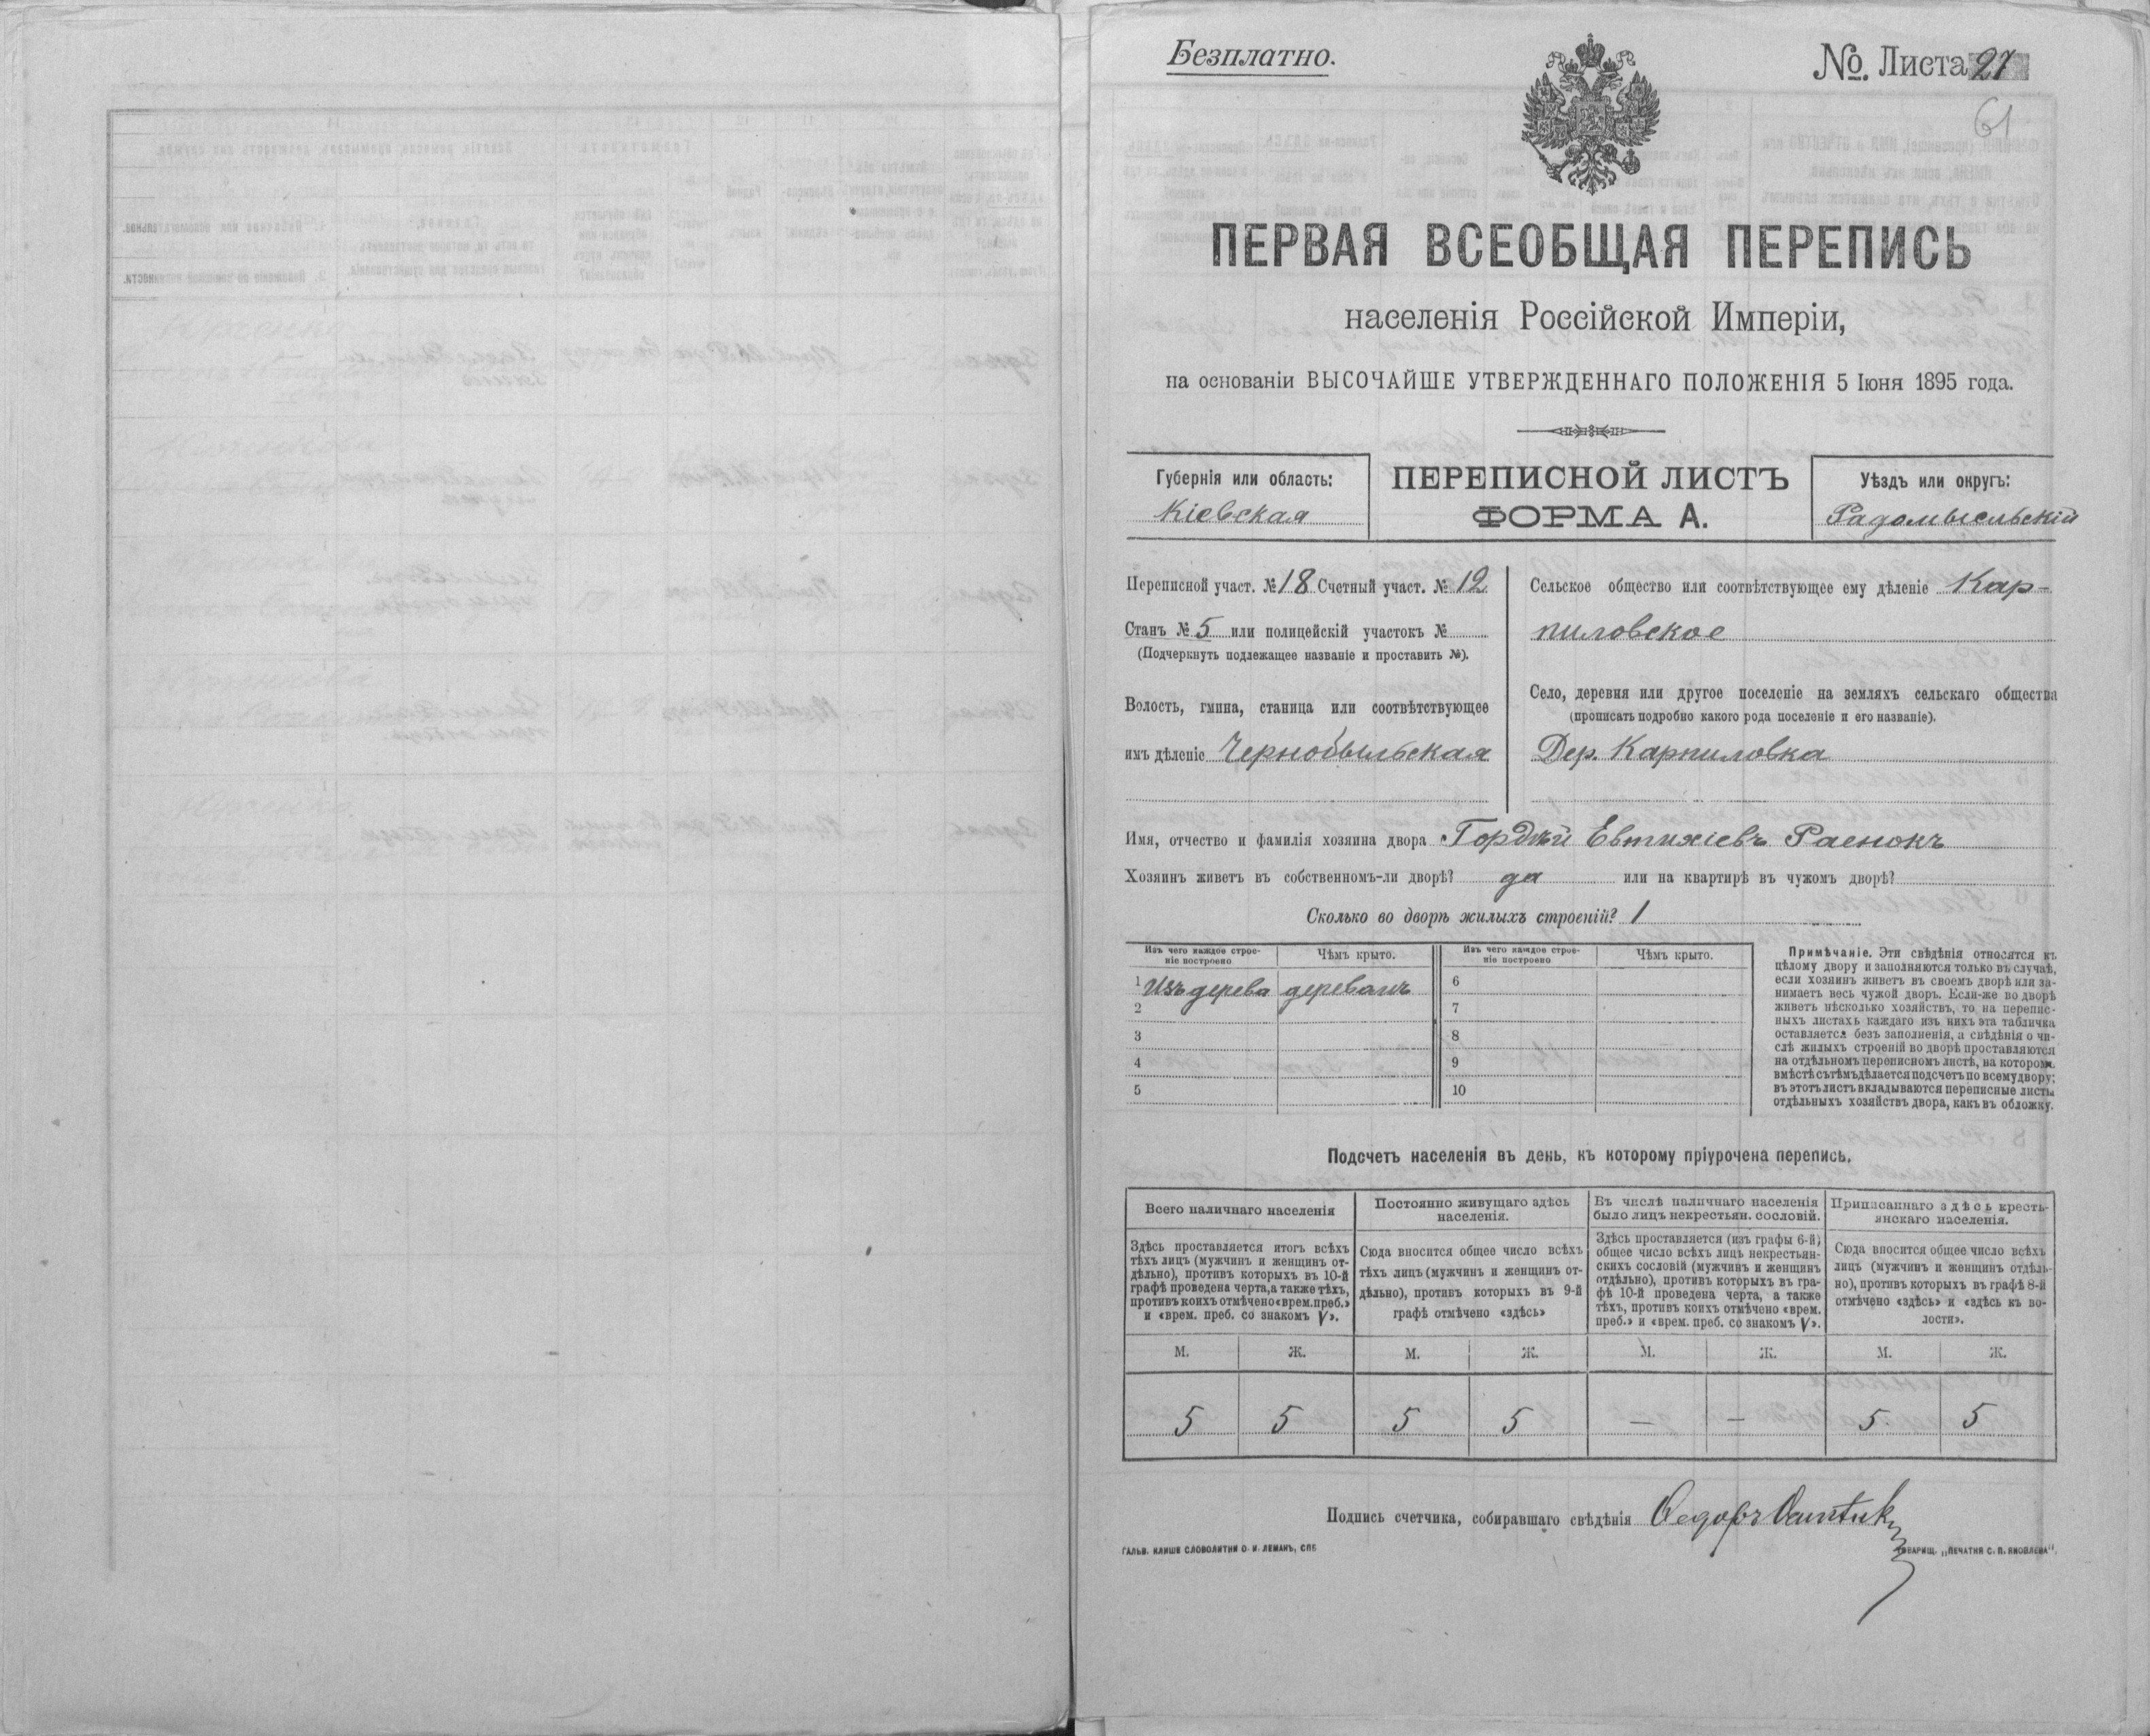 Безплатно.
№. Листа 27
61
ПЕРВАЯ ВСЕОБЩАЯ ПЕРЕПИСЬ
населенія Россійской Имперіи,
на основаніи ВЫСОЧАЙШЕ УТВЕРЖДЕННАГО ПОЛОЖЕНІЯ 5 Іюня 1895 года.
Губернія или область:
Кіевская
ПЕРЕПИСНОЙ ЛИСТЪ
ФОРМА А.
Уѣздъ или округъ:
Радомысльскій
Переписной участ. № 18 Счетный участ. № 12
Станъ № 5 или полицейскій участокъ №
(Подчеркнуть подлежащее названіе и проставить №).
Волость, гмина, станица или соотвѣтствующее
имъ дѣленіе Чернобыльская
Сельское общество или соотвѣтствующее ему дѣленіе Кар-
пиловское
Село, деревня или другое поселеніе на земляхъ сельскаго общества
(прописать подробно какого рода поселеніе и его названіе).
Дер. Карпиловка
Имя, отчество и фамилія хозяина двора Гордѣй Евтихіевъ Раенокъ
Хозяинъ живетъ въ собственномъ-ли дворѣ? да или на квартирѣ въ чужомъ дворѣ?
Сколько во дворѣ жилыхъ строеній? 1
Изъ чего каждое строе-
ніе построено
Чѣмъ крыто.
Изъ чего каждое строе-
ніе построено
Чѣмъ крыто.
1 Изъ дерева деревомъ 6
2 7
3 8
4 9
5 10
Примѣчаніе. Эти свѣдѣнія относятся къ
цѣлому двору и заполняются только въ случаѣ,
если хозяинъ живетъ въ своемъ дворѣ или за-
нимаетъ весь чужой дворъ. Если-же во дворѣ
живетъ нѣсколько хозяйствъ, то на перепис-
ныхъ листахъ каждаго изъ нихъ эта табличка
оставляется безъ заполненія, а свѣдѣнія о чи-
слѣ жилыхъ строеній во дворѣ проставляются
на отдѣльномъ переписномъ листѣ, на котором.
вмѣстѣ съ тѣмъ дѣлается подсчетъ по всему двору;
въ этотъ листъ вкладываются переписные листы
отдѣльныхъ хозяйствъ двора, какъ въ обложку.
Подсчетъ населенія въ день, къ которому пріурочена перепись.
Всего наличнаго населенія
Постоянно живущаго здѣсь
населенія.
Въ числѣ наличнаго населенія
было лицъ некрестьян. сословій.
Приписаннаго здѣсь кресть-
янскаго населенія.
Здѣсь проставляется итогъ всѣхъ
тѣхъ лицъ (мужчинъ и женщинъ от-
дѣльно), противъ которыхъ въ 10-й
графѣ проведена черта, а также тѣхъ,
противъ коихъ отмѣчено «врем. преб.»
и «врем. преб. со знакомъ V».
Сюда вносится общее число всѣхъ
тѣхъ лицъ (мужчинъ и женщинъ от-
дѣльно), противъ которыхъ въ 9-й
графѣ отмѣчено «здѣсь»
Здѣсь проставляется (изъ графы 6-й)
общее число всѣхъ лицъ некрестьян-
скихъ сословій (мужчинъ и женщинъ
отдѣльно), противъ которыхъ въ гра-
фѣ 10-й проведена черта, а также
тѣхъ, противъ коихъ отмѣчено «врем.
преб.» и «врем. преб. со знакомъ V».
Сюда вносится общее число всѣхъ
лицъ (мужчинъ и женщинъ отдѣль-
но), противъ которыхъ въ графѣ 8-й
отмѣчено «здѣсь» и «здѣсь къ во-
лости».
М. Ж. М. Ж. М. Ж. М. Ж.
5 5 5 5 — — 5 5
Подпись счетчика, собиравшаго свѣдѣнія Ѳедоръ
ГАЛЬВ. КЛИШЕ СЛОВОЛИТНИ О. И. ЛЕМАНЪ, СПБ
ТОВАРИЩ. „ПЕЧАТНЯ С. П. ЯКОВЛЕВА".